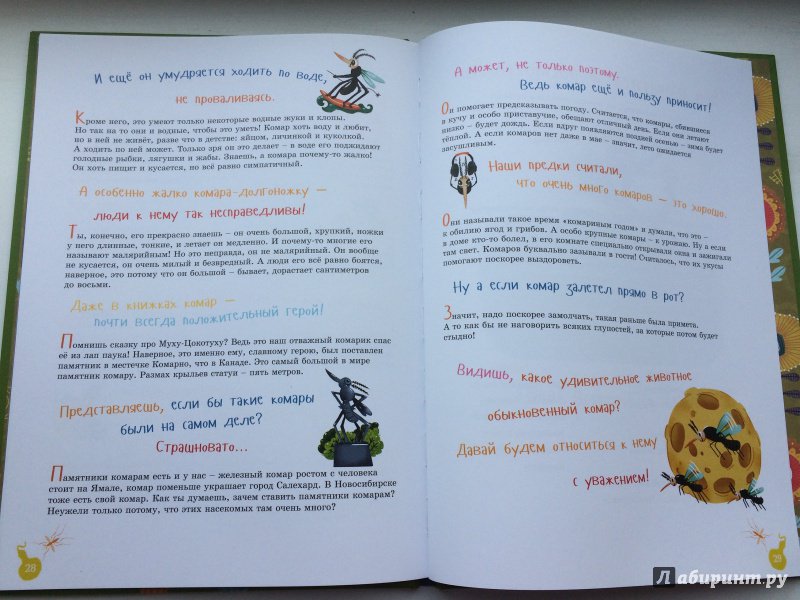 И ещё он умудряется ходить по воде,
не проваливаясь.
Кроме него, это умеют только некоторые водные жуки и клопы.
Но так на то они и водные, чтобы это уметь! Комар хоть воду и любит,
но в ней не живёт, разве что в детстве: яйцом, личинкой и куколкой.
А ходить по ней может. Только зря он это делает – в воде его поджидают
голодные рыбки, лягушки и жабы. Знаешь, а комара почему-то жалко!
Он хоть пищит и кусается, но всё равно симпатичный.
А особенно жалко комара-долгоножку –
люди к нему так несправедливы!
Ты, конечно, его прекрасно знаешь – он очень большой, хрупкий, ножки
у него длинные, тонкие, и летает он медленно. И почему-то многие его
называют малярийным! Но это неправда, он не малярийный. Он вообще
не кусается, он очень милый и безвредный. А люди его всё равно боятся,
наверное, это потому что он большой – бывает, дорастает сантиметров
до восьми.
Даже в книжках комар –
почти всегда положительный герой!
Помнишь сказку про Муху-Цокотуху? Ведь это наш отважный комарик спас
её из лап паука! Наверное, это именно ему, славному герою, был поставлен
памятник в местечке Комарно, что в Канаде. Это самый большой в мире
памятник комару. Размах крыльев статуи – пять метров.
Представляешь, если бы такие комары
были на самом деле?
Страшновато...
Памятники комарам есть и у нас – железный комар ростом с человека
стоит на Ямале, комар поменьше украшает город Салехард. В Новосибирске
тоже есть свой комар. Как ты думаешь, зачем ставить памятники комарам?
Неужели только потому, что этих насекомых там очень много?
28
А может, не только поэтому.
Ведь комар ещё и пользу приносит!
Он помогает предсказывать погоду. Считается, что комары, сбившиеся
в кучу и особо приставучие, обещают отличный день. Если они летают
низко – будет дождь. Если вдруг появляются поздней осенью – зима будет
тёплой. А если комаров нет даже в мае – значит, лето ожидается
засушливым.
Наши предки считали,
что очень много комаров – это хорошо.
Они называли такое время «комариным годом» и думали, что это –
к обилию ягод и грибов. А особо крупные комары – к урожаю. Ну а если
в доме кто-то болел, в его комнате специально открывали окна и зажигали
там свет. Комаров буквально зазывали в гости! Считалось, что их укусы
помогают поскорее выздороветь.
Ну а если комар залетел прямо в рот?
Значит, надо поскорее замолчать, такая раньше была примета.
А то как бы не наговорить всяких глупостей, за которые потом будет
стыдно!
Видишь, какое удивительное животное
обыкновенный комар?
Давай будем относиться к нему
с уважением!
29
Лабиринт.ру